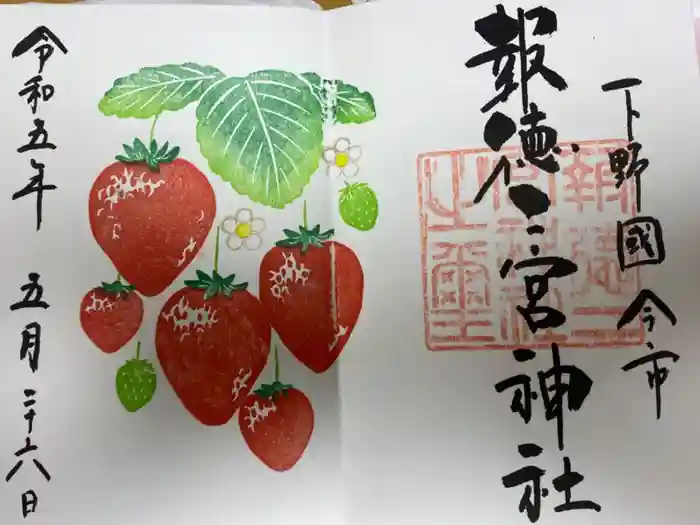 下野國今市
報徳二宮神社
令和五年 五月二十六日